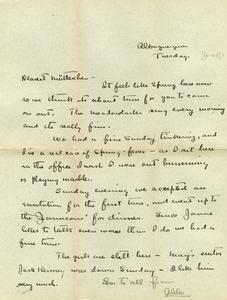 Albuquerque
Tuesday.
Dearest Mütterchen –
It feels like Spring here now
so we think it's about time for you to come
on out. The Meadowlarks sing every morning
and its really fine.
We had a fine Sunday tinkering, and
I've a real case of Spring-fever – as I sit here
in the office I wish I were out
or playing marbles.
Sunday evening we accepted an
invitation for the first time, and went up to
the Jamesons' for dinner. Since
likes to talk even worse than I do we had a
fine time.
The girls are all here – Mary's suitor
Jack was down Sunday – I like him
very much.
Love to all from